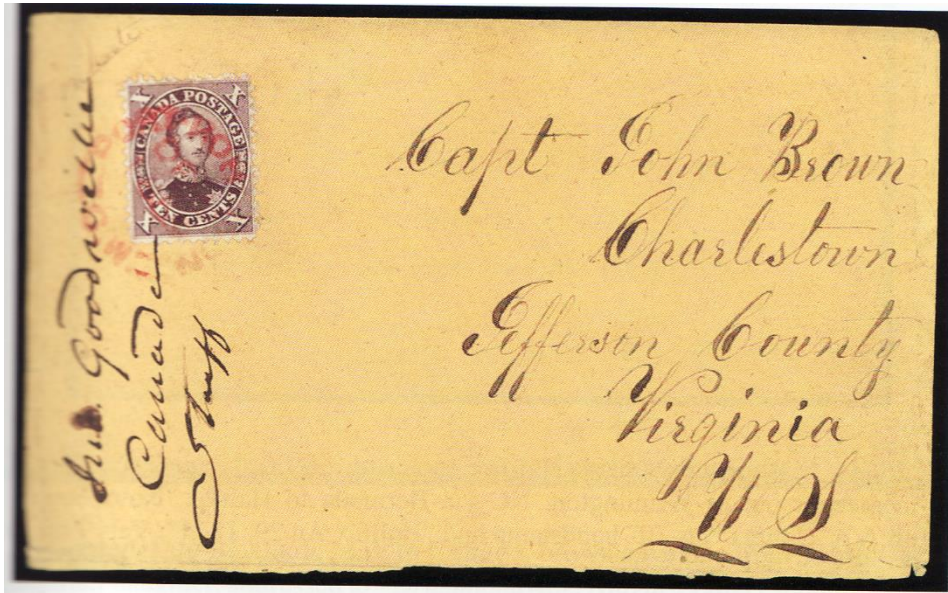 X CANADA POSTAGE X
X TEN CENTS X
Capt John Brown
Charlestown
Jefferson County
Virginia
U S
Goodwillie
Canada
Stuff